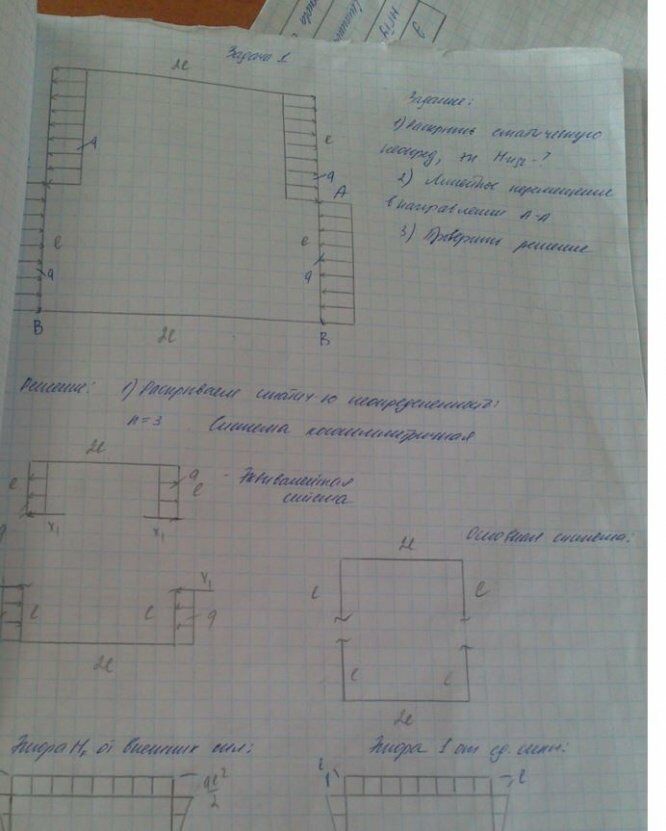 Задача 1
2l
q
l
q
A
l
l
q
q
B
2l
B
Задание:
1) Раскрыть статическую
неопред, эп Mизг - ?
2) Линейное перемещение
в направлении A-A
3) Проверить решение
Решение: 1) Раскрываем статич-ю неопределенность:
n=3 Система кососимметричная
2l
l
q
l
- Эквивалентная
система
q
x₁
x₁
Основная система:
2l
l
l
x₁
l
l
q
2l
l
l
2l
Эпюра M от внешних сил:
Эпюра 1 от ед. силы:
ql²/2
l
1
l